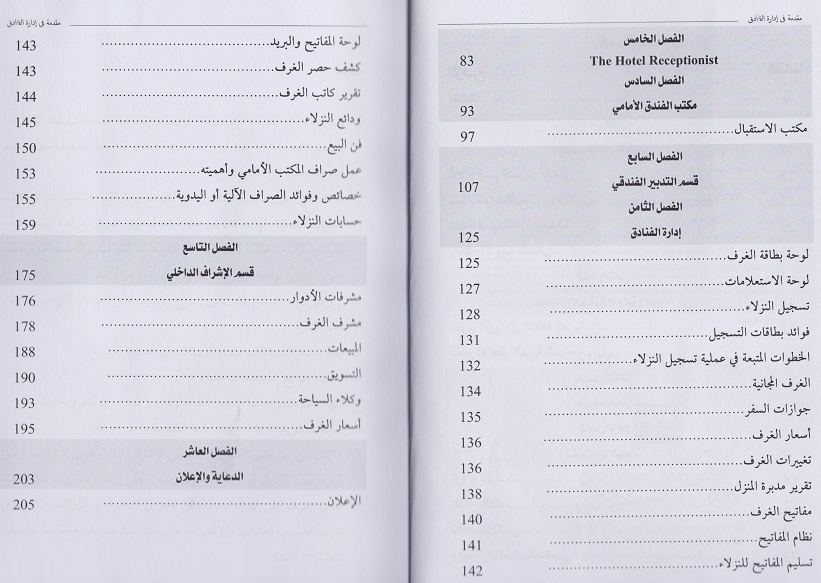 مقدمة في إدارة الفنادق
الفصل الخامس
The Hotel Receptionist 83
الفصل السادس
مكتب الفندق الأمامي 93
مكتب الاستقبال 97
الفصل السابع
قسم التدبير الفندقي 107
الفصل الثامن
إدارة الفنادق 125
لوحة بطاقة الغرف 125
لوحة الاستعلامات 127
تسجيل النزلاء 128
فوائد بطاقات التسجيل 131
الخطوات المتبعة في عملية تسجيل النزلاء 132
الغرف المجانية 134
جوازات السفر 135
أسعار الغرف 136
تغييرات الغرف 136
تقرير مدبرة المنزل 138
مفاتيح الغرف 140
نظام المفاتيح 141
تسليم المفاتيح للنزلاء 142
مقدمة في إدارة الفنادق
لوحة المفاتيح والبريد 143
كشف حصر الغرف 143
تقرير كاتب الغرف 144
ودائع النزلاء 145
فن البيع 150
عمل صراف المكتب الأمامي وأهميته 153
خصائص وفوائد الصراف الآلية أو اليدوية 155
حسابات النزلاء 159
الفصل التاسع
قسم الإشراف الداخلي 175
مشرفات الأدوار 176
مشرف الغرف 178
المبيعات 188
التسويق 190
وكلاء السياحة 193
أسعار الغرف 195
الفصل العاشر
الدعاية والإعلان 203
الإعلان 205